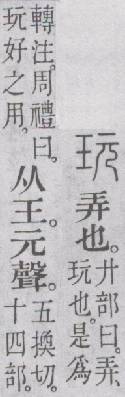 玩
弄也。
廾部曰。弄、
玩也。是爲
轉注。周禮曰。
玩好之用。
从王。元聲。
五換切。
十四部。